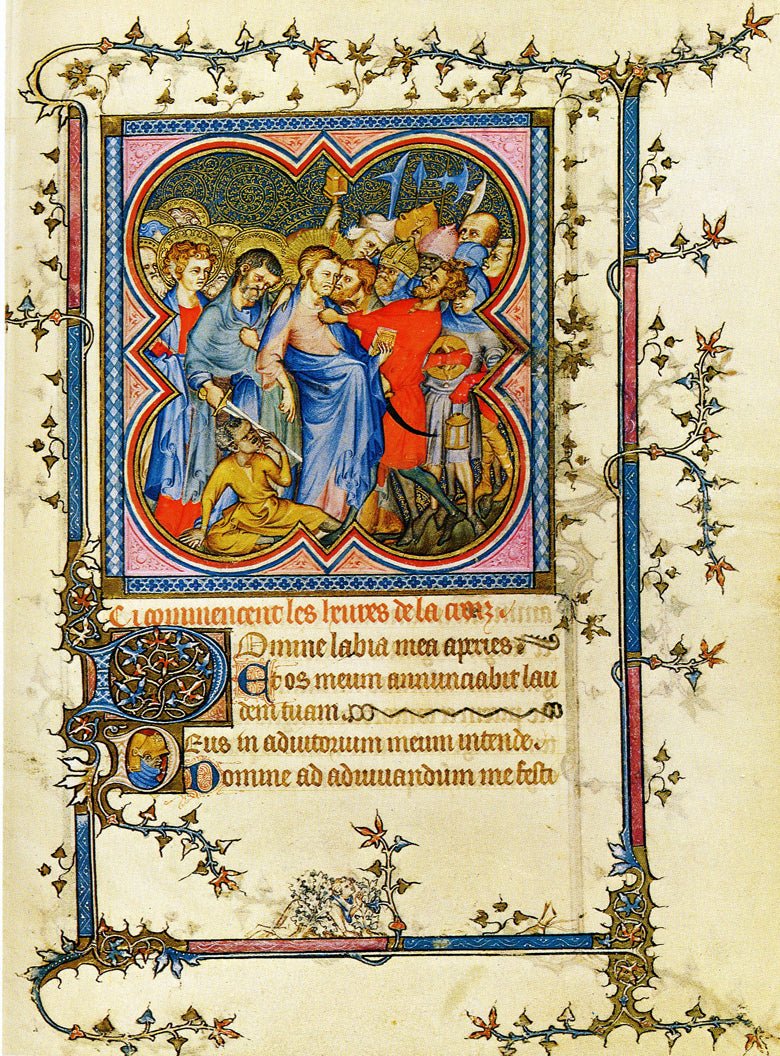 Ci commencent les heures de la croiz.
Domine labia mea aperies.
Et os meum annunciabit lau
dem tuam
Deus in adiutorium meum intende.
Domine ad adiuuandum me festi